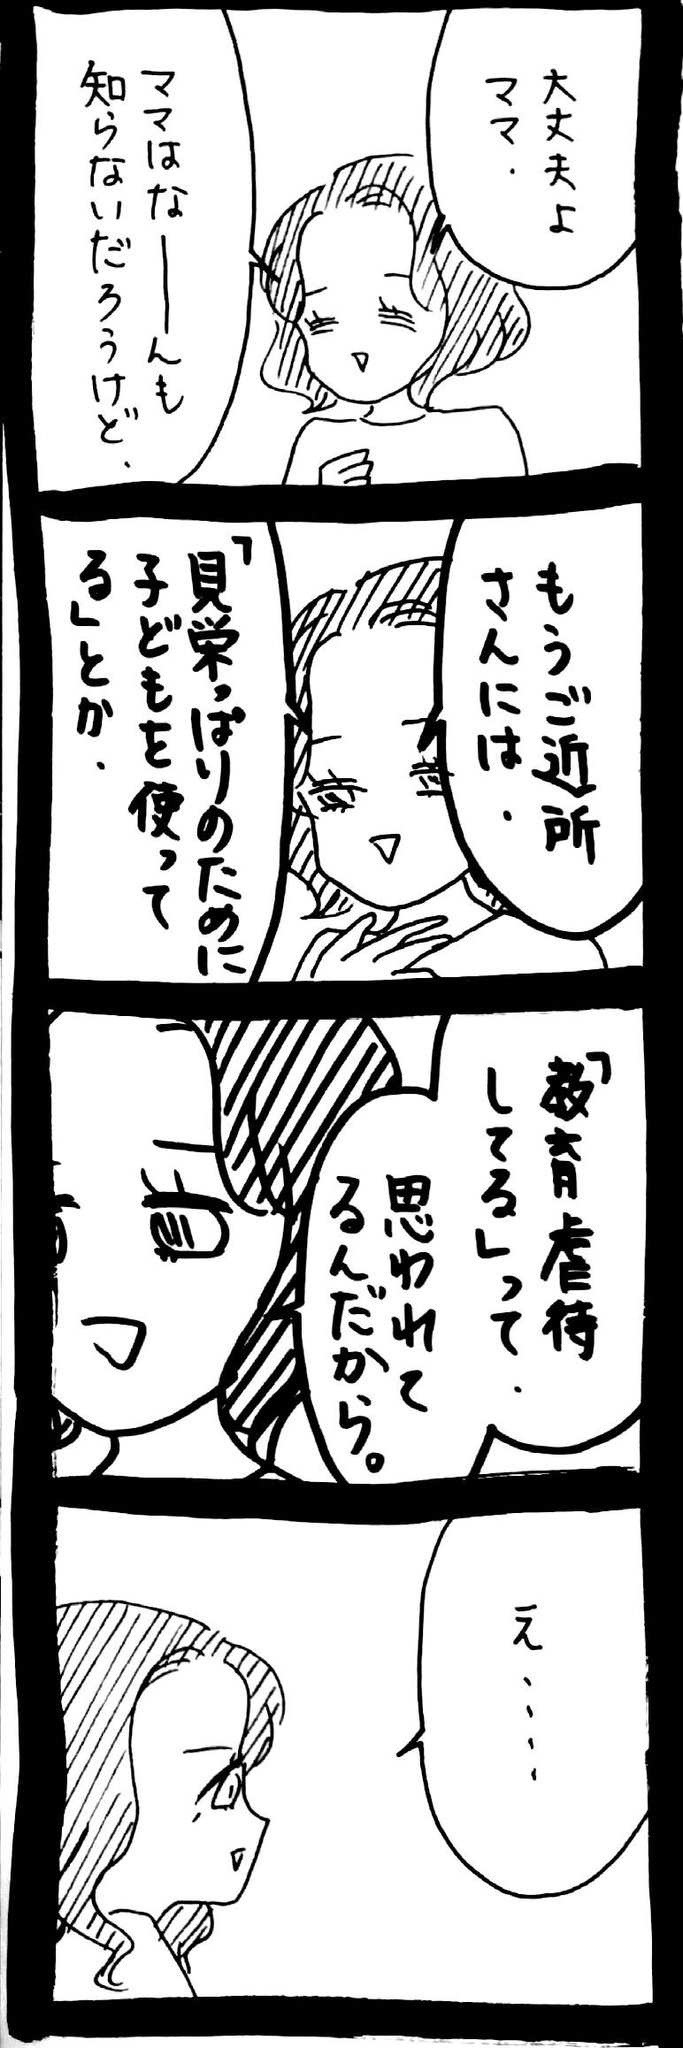 大丈夫よ
ママ.
ママはなーんも
知らないだろうけど.
もうご近所
さんには.
「見栄っぱりのために
子どもを使って
る」とか.
「教育虐待
してる」って.
思われて
るんだから。
え.....